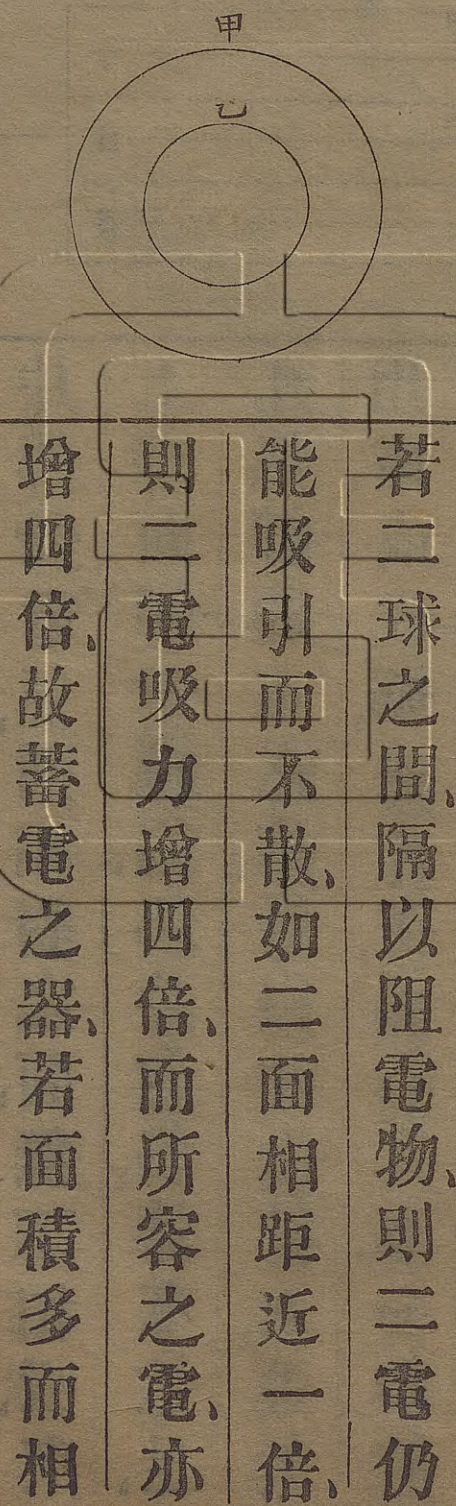 甲
乙
若二球之間、隔以阻電物、則二電仍
能吸引而不散、如二面相距近一倍、
則二電吸力增四倍、而所容之電、亦
增四倍、故蓄電之器、若面積多而相